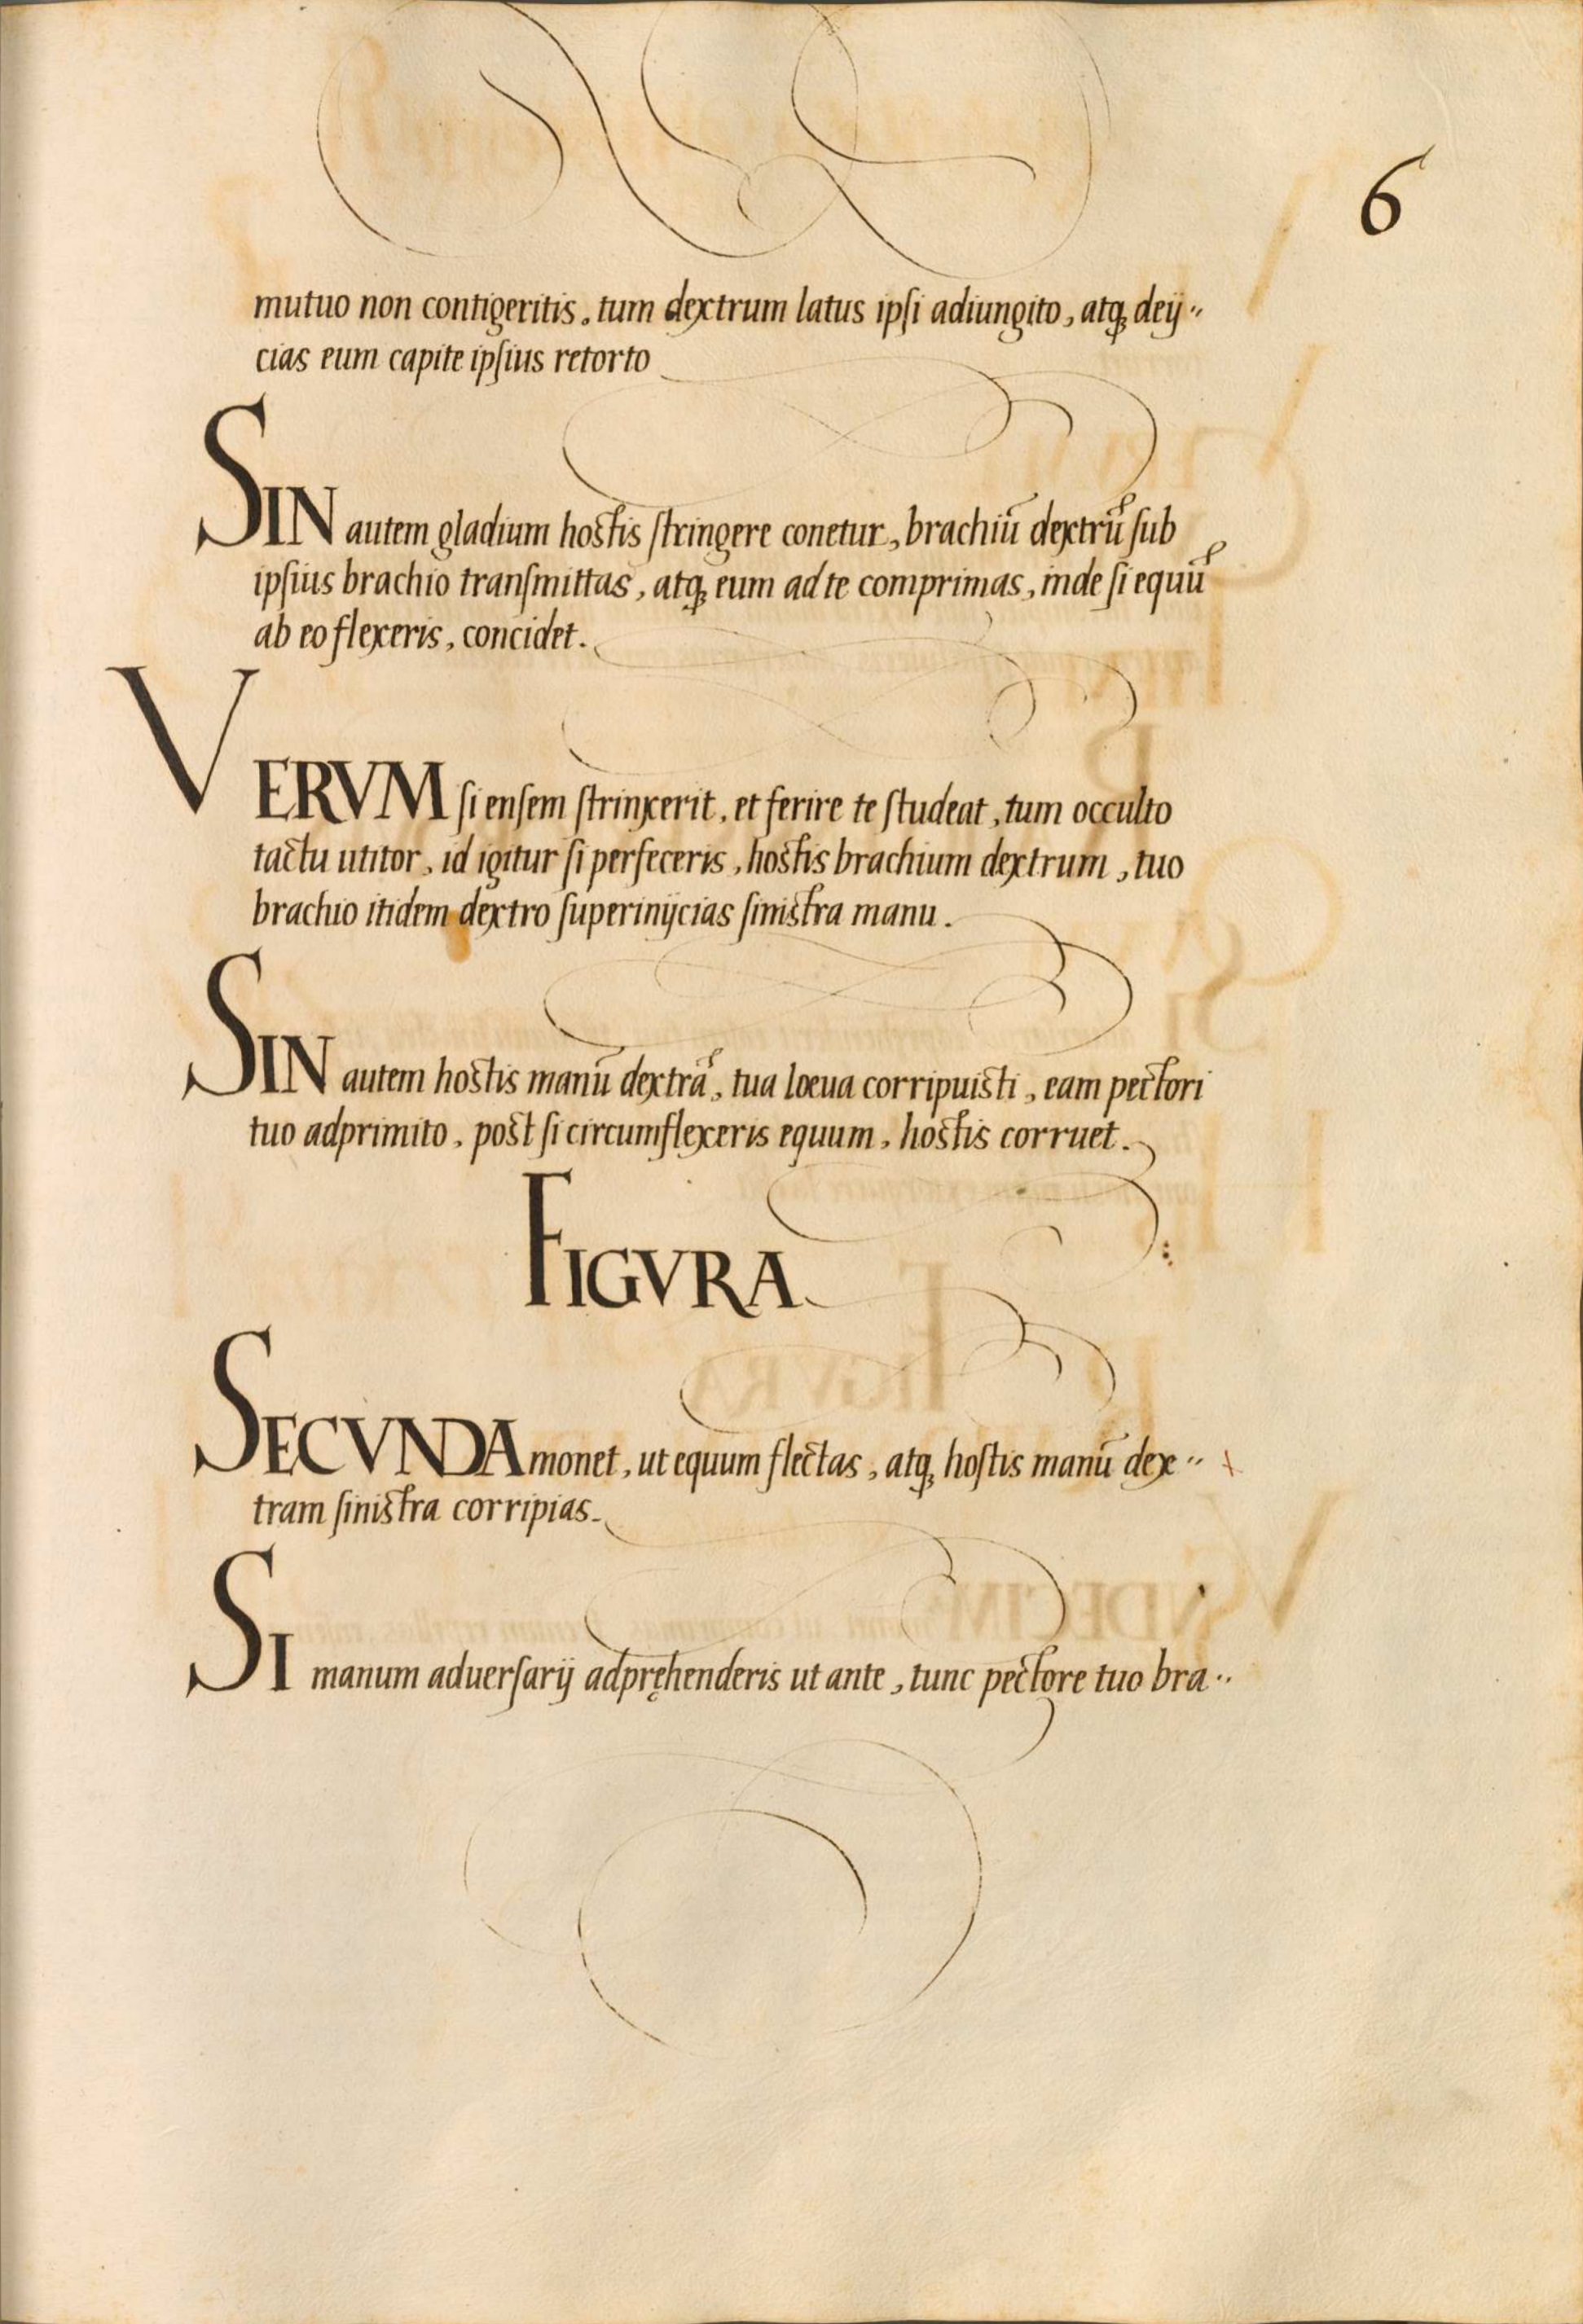 6
mutuo non contigeritis. tum dextrum latus ipſi adiungito, atq; deij〃
cias eum capite ipſius retorto
SIN autem gladium hostis ſtringere conetur, brachiū dextrū ſub
ipſius brachio tranſmittas, atq; eum ad te comprimas, inde ſi equū
ab eo flexeris, concidet.
VERVM ſi enſem ſtrinxerit, et ferire te ſtudeat, tum occulto
tactu utitor, id igitur ſi perfeceris, hostis brachium dextrum, tuo
brachio itidem dextro ſuperinijcias ſinistra manu.
SIN autem hostis manū dextrā, tua loeua corripuisti, eam pectori
tuo adprimito, post ſi circumflexeris equum, hostis corruet.
FIGVRA
SECVNDA monet, ut equum flectas, atq; hoſtis manū dex〃
tram ſinistra corripias.
SI manum aduerſarij adpręhenderis ut ante, tunc pectore tuo bra〃